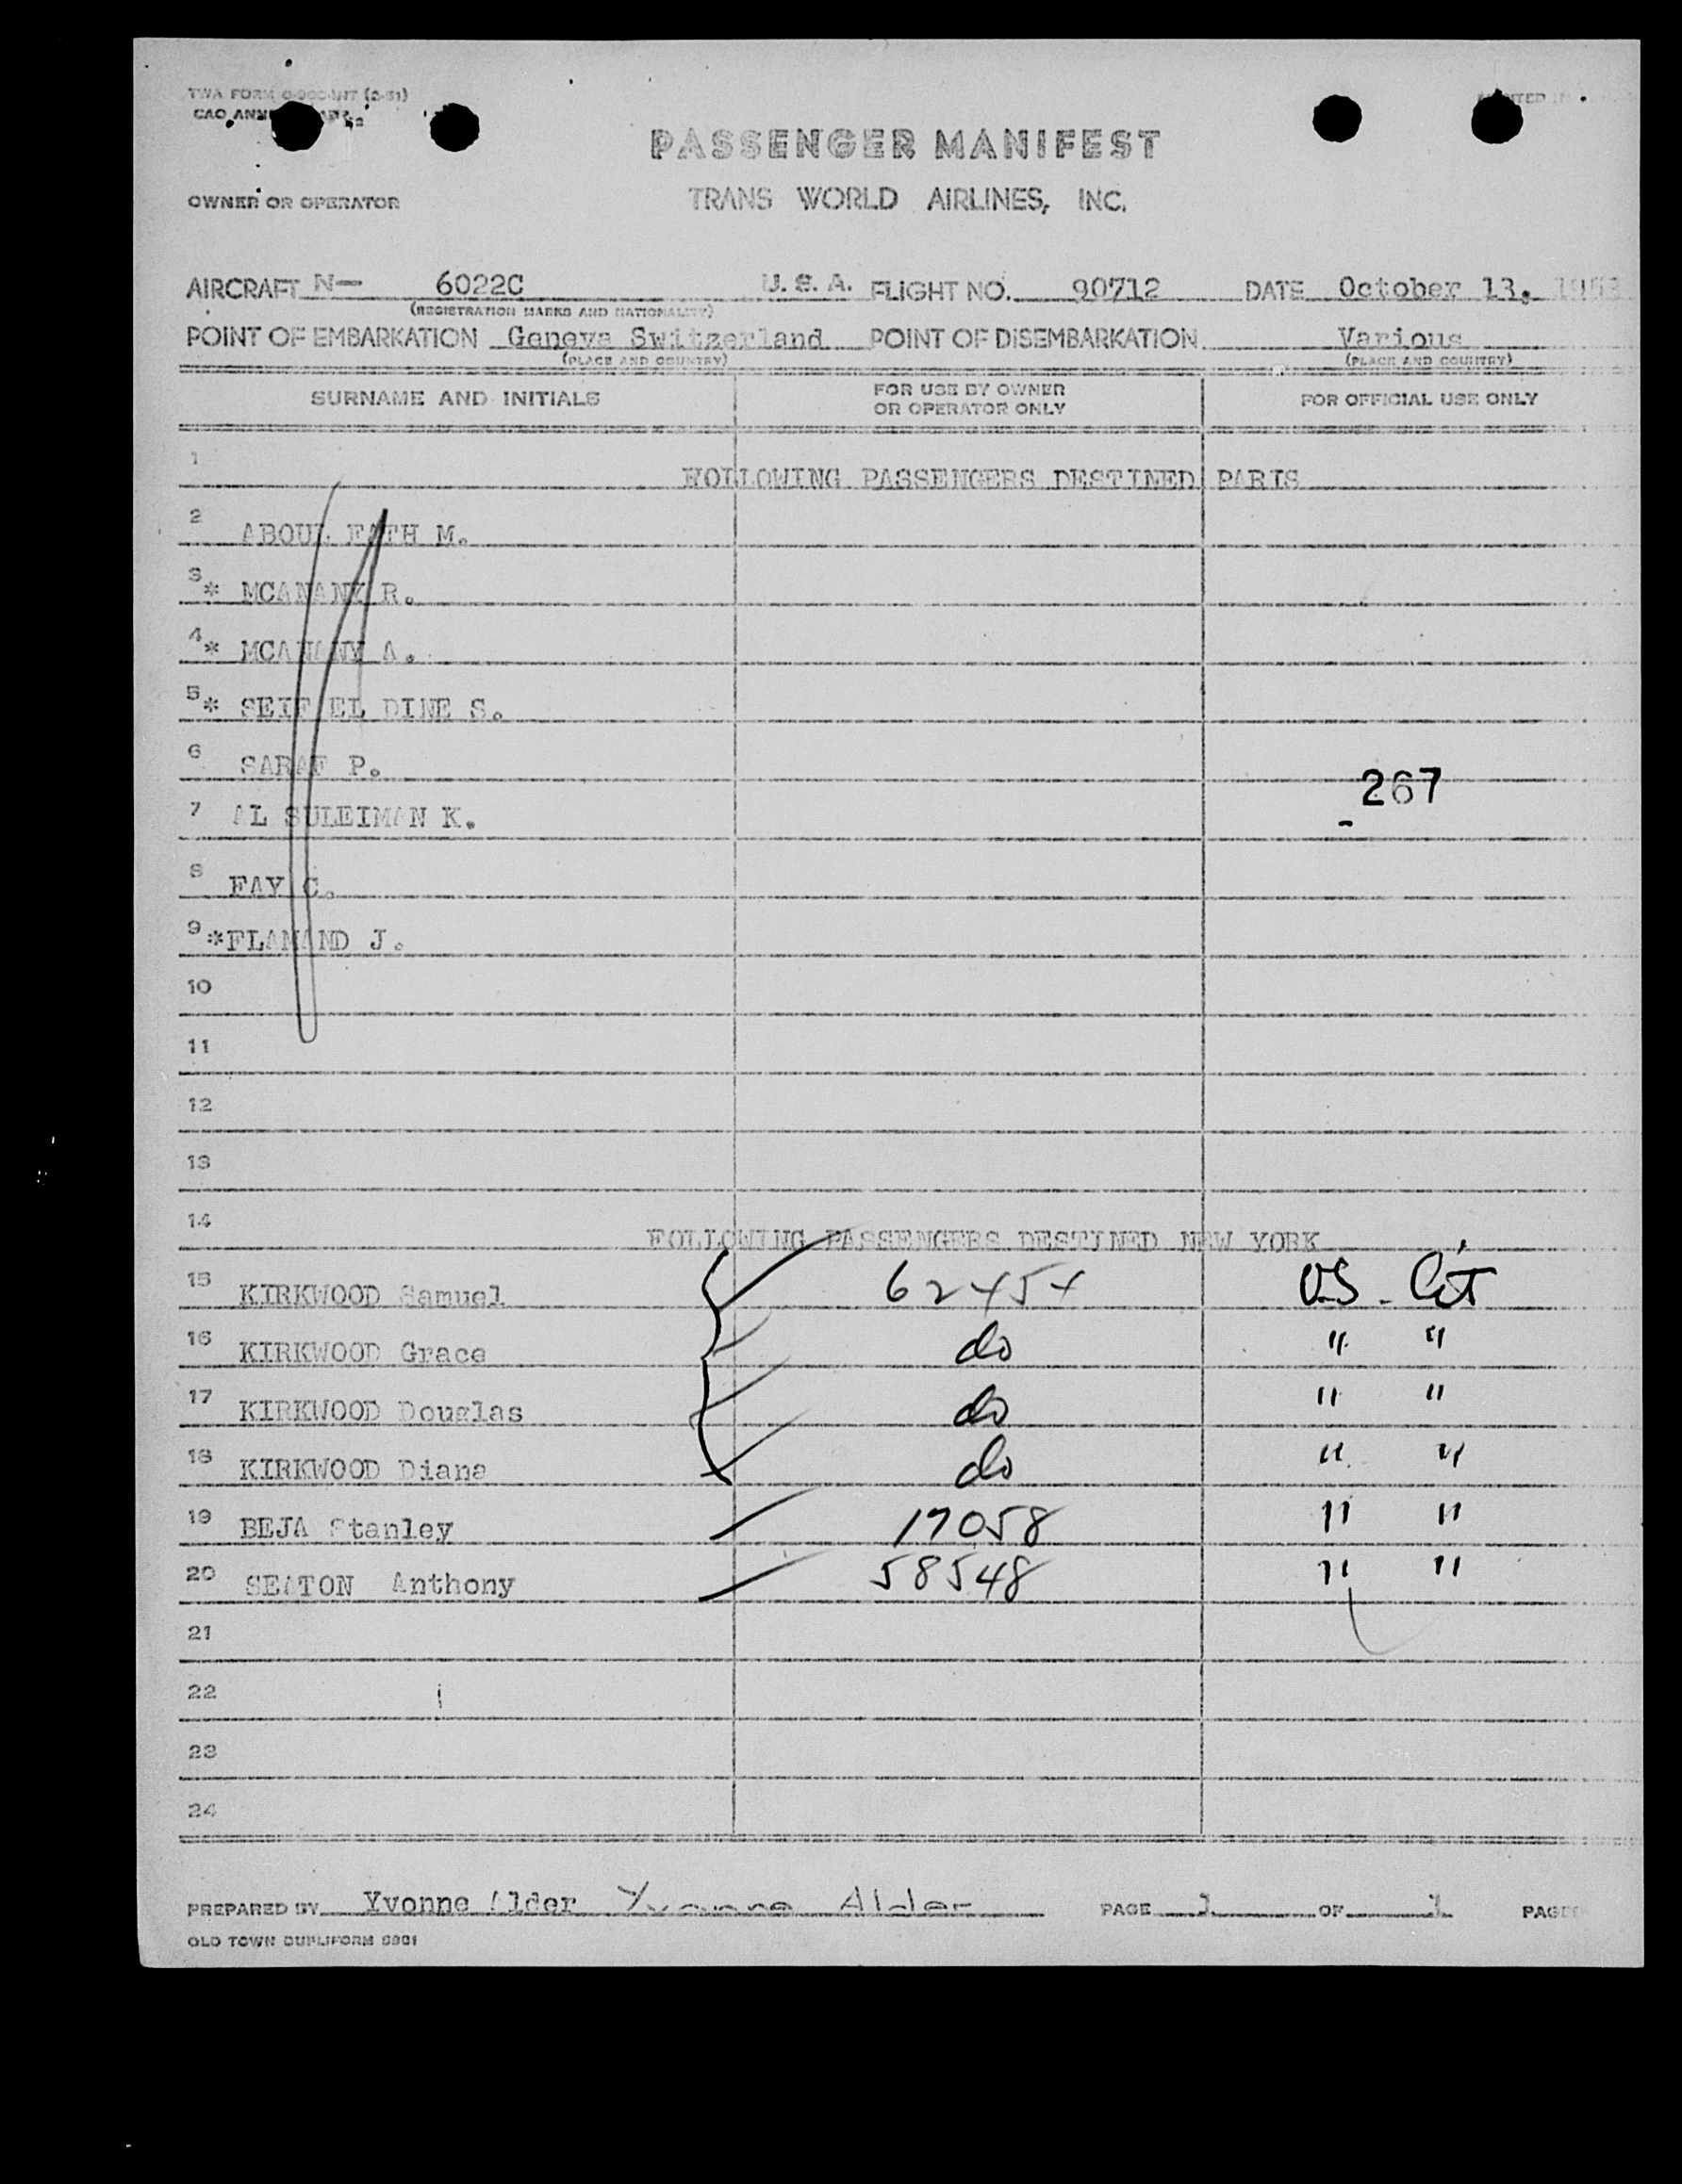 TWA FORM
OWNER OR OPERATOR
PASSENGER MANIFEST
TRANS WORLD AIRLINES, INC.
AIRCRAFT N— 6022C U.S.A. FLIGHT NO. 90712 DATE October 13,
(REGISTRATION MARKS AND NATIONALITY)
POINT OF EMBARKATION Geneva Switzerland POINT OF DISEMBARKATION Various
(PLACE AND COUNTRY) (PLACE AND COUNTRY)
SURNAME AND INITIALS FOR USE BY OWNER OR OPERATOR ONLY FOR OFFICIAL USE ONLY
1 FOLLOWING PASSENGERS DESTINED PARIS
2 ABOUL FATH M.
3 * MCANANY R.
4 * MCANANY A.
5 * SEIF EL DINE S.
6 SARAF P.
267
7 AL SULEIMAN K.
8 FAY C.
9 *FLAMAND J.
10
11
12
13
14 FOLLOWING PASSENGERS DESTINED NEW YORK
15 KIRKWOOD Samuel 62454 US Cit
16 KIRKWOOD Grace do " "
17 KIRKWOOD Douglas do " "
18 KIRKWOOD Diana do " "
19 BEJA Stanley 17058 " "
20 SEATON Anthony 58548 " "
21
22
23
24
PREPARED BY Yvonne Alder Yvonne Alder PAGE 1 OF 1
OLD TOWN DUPLIFORM